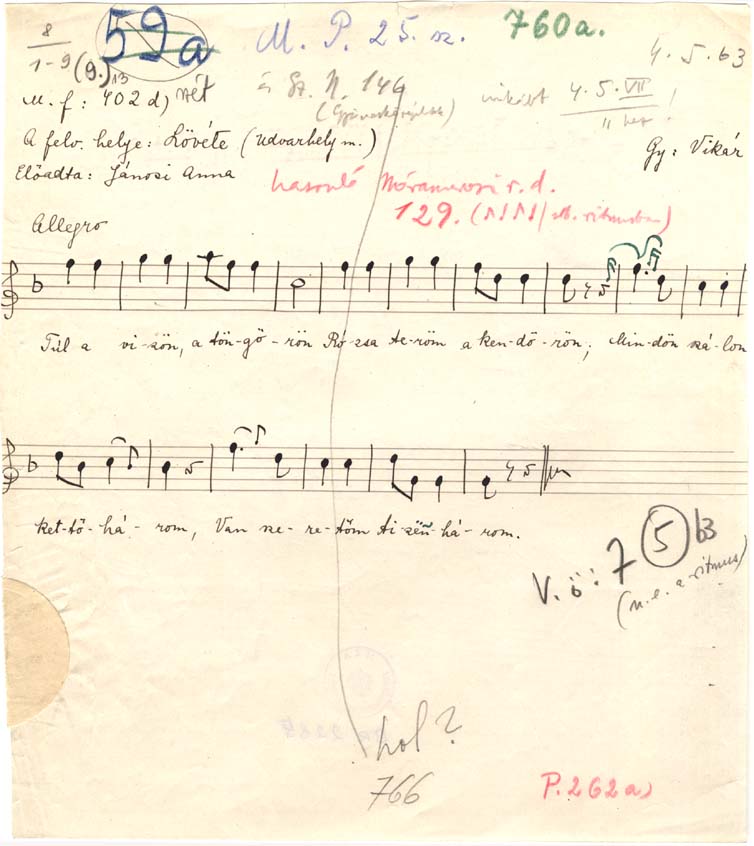 8
1-9 (9.) 13 59a M. P. 25. sz. 760a. 4. 5. b3
M. f: 402 d) vét és Sz. N. 146 inkább 4. 5. VII
A felv. helye: Lövéte (Udvarhely m.) Gy: Vikár
Előadta: Jánosi Anna hasonló Máramarosi r. d.
129.
Allegro
Túl a vi-zön, a tön-gö-rön Ró-zsa te-röm a ken-dö-rön; Min-dön szá-lon
ket-tö-há-rom, Van sze-re-töm ti-zën-há-rom.
V. ö: 7 5 b3
(n.e. a ritmus)
hol?
766
P. 262a)